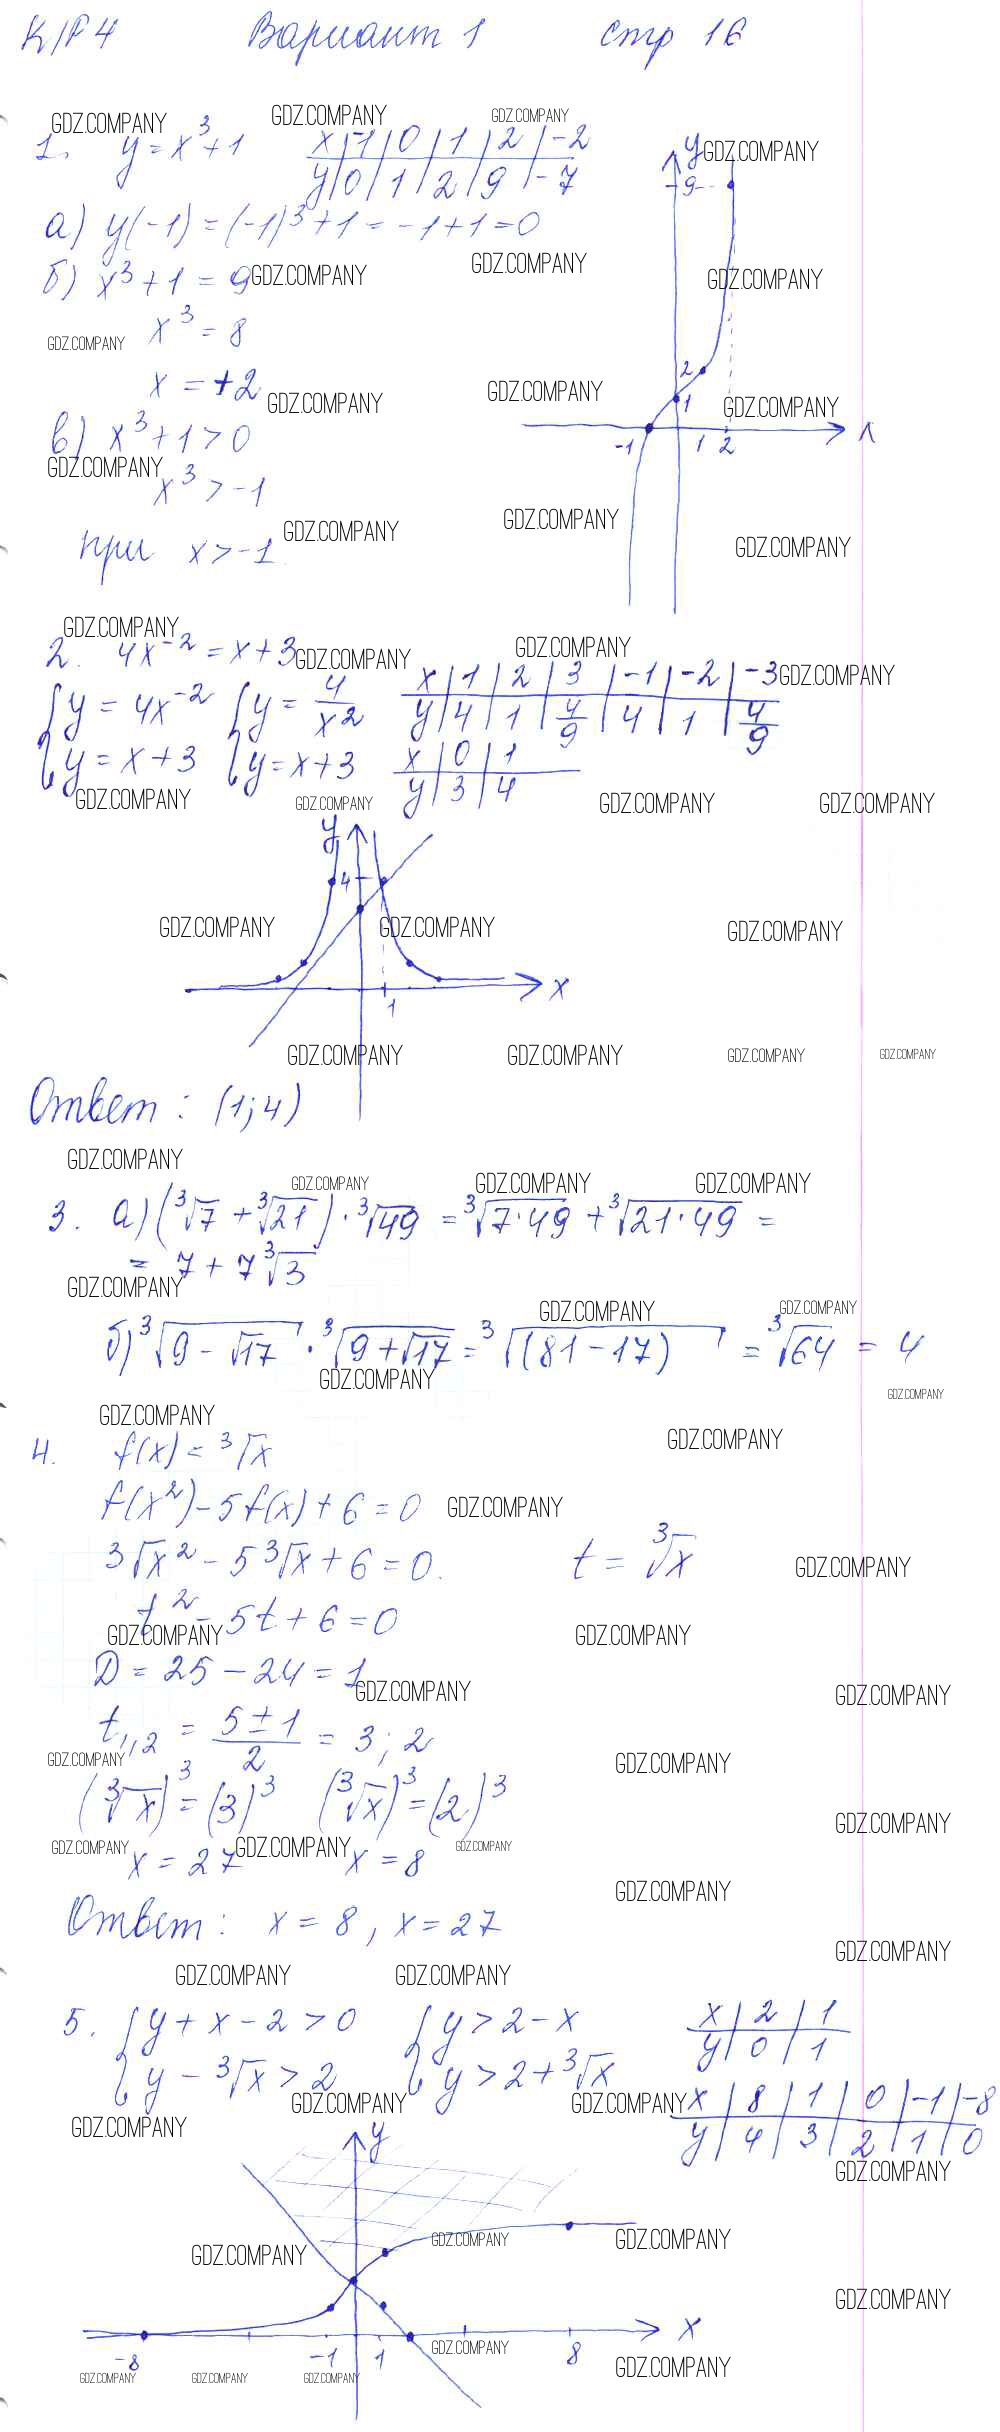 К/Р 4 Вариант 1 стр 16
1. y = x³ + 1
x | -1 | 0 | 1 | 2 | -2
y | 0 | 1 | 2 | 9 | -7
а) y(-1) = (-1)³ + 1 = -1 + 1 = 0
б) x³ + 1 = 9
x³ = 8
x = +2
в) x³ + 1 > 0
x³ > -1
при x > -1
y
9
2
1
-1 1 2 x
2. 4x⁻² = x + 3
{ y = 4x⁻² { y = 4/x²
{ y = x + 3 { y = x + 3
x | 1 | 2 | 3 | -1 | -2 | -3
y | 4 | 1 | 4/9 | 4 | 1 | 4/9
x | 0 | 1
y | 3 | 4
y
4
1 x
Ответ: (1; 4)
3. а) (³√7 + ³√21) · ³√49 = ³√(7·49) + ³√(21·49) =
= 7 + 7³√3
б) ³√(9 - √17) · ³√(9 + √17) = ³√((81 - 17)) = ³√64 = 4
4. f(x) = ³√x
f(x²) - 5f(x) + 6 = 0
³√x² - 5³√x + 6 = 0. t = ³√x
t² - 5t + 6 = 0
D = 25 - 24 = 1
t₁,₂ = (5 ± 1)/2 = 3; 2
(³√x)³ = (3)³ (³√x)³ = (2)³
x = 27 x = 8
Ответ: x = 8, x = 27
5. { y + x - 2 > 0 { y > 2 - x
{ y - ³√x > 2 { y > 2 + ³√x
x | 2 | 1
y | 0 | 1
x | 8 | 1 | 0 | -1 | -8
y | 4 | 3 | 2 | 1 | 0
y
-8 -1 1 8 x
GDZ.COMPANY